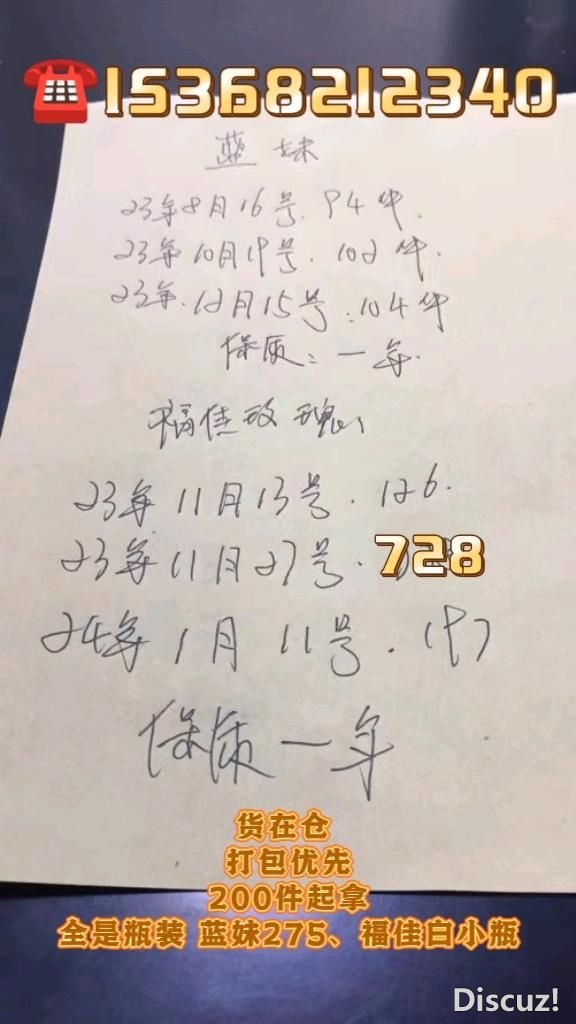 ☎15368212340
蓝妹
23年8月16号.94件.
23年10月19号.102件.
23年.12月15号.104件
保质:一年.
福佳玫瑰
23年11月13号.126.
23年11月27号.728
24年1月11号.197
保质一年
货在仓
打包优先
200件起拿
全是瓶装 蓝妹275、福佳白小瓶
Discuz!